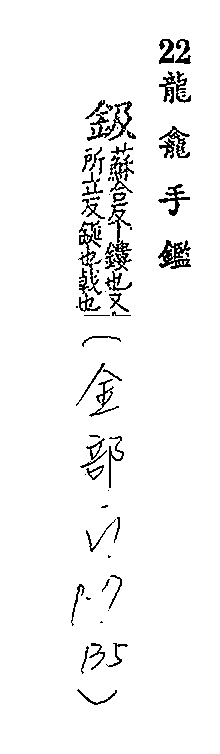 22龍龕手鑑
鈒
蘇合反鏤也又
所立反鋋也戟也
(金部.V1.P.7 B5)